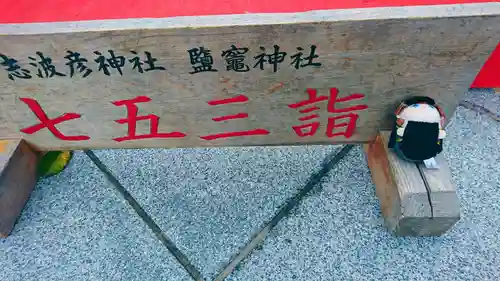 志波彦神社 鹽竈神社
七五三詣